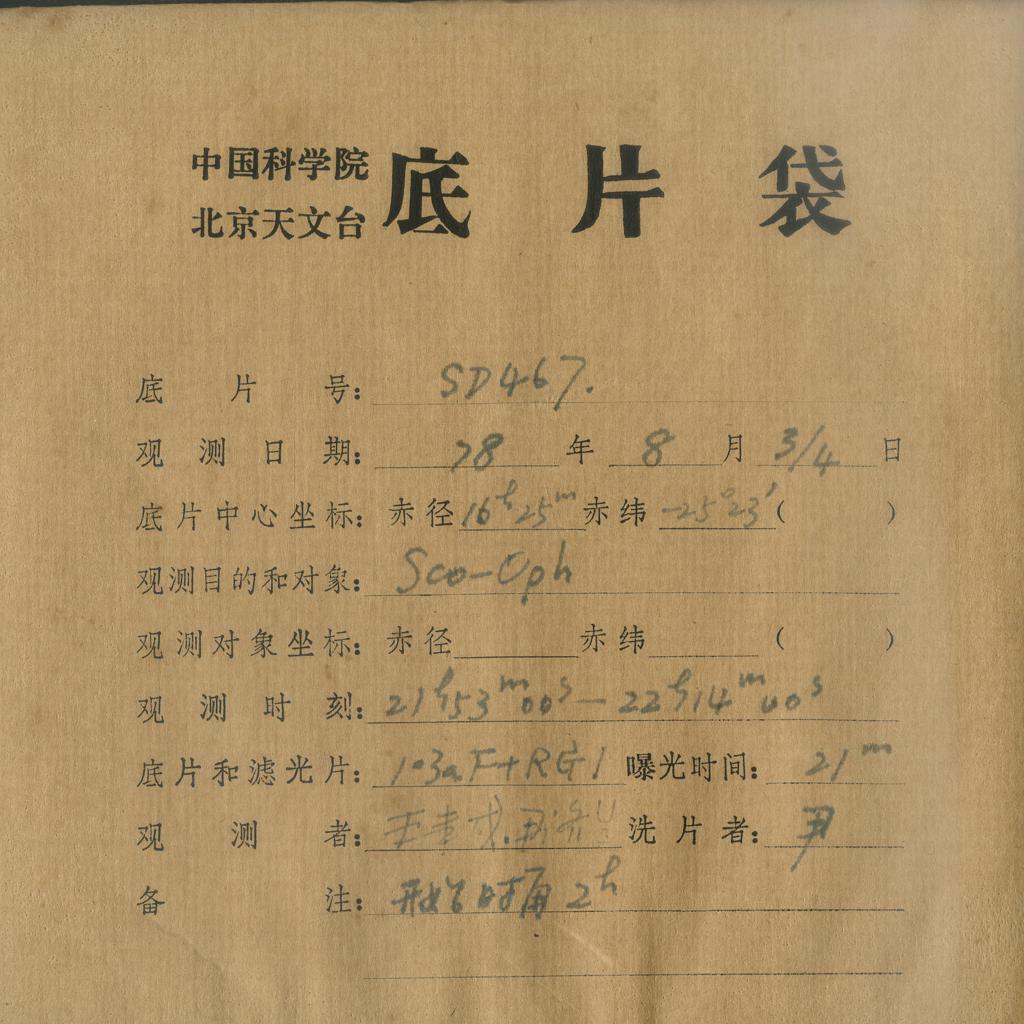 中国科学院
北京天文台
底片袋
底片号: SD467.
观测日期: 78 年 8 月 3/4 日
底片中心坐标: 赤径 16h25m 赤纬 -25°23′ ( )
观测目的和对象: Sco-Oph
观测对象坐标: 赤径 赤纬 ( )
观测时刻: 21h53m00s — 22h14m00s
底片和滤光片: 103aF+RG1 曝光时间: 21m
观测者: 洗片者: 尹
备注: 开始时角 2h